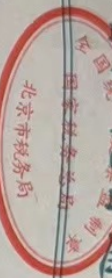 全国统 监制章
国家税务总局
北京市税务局